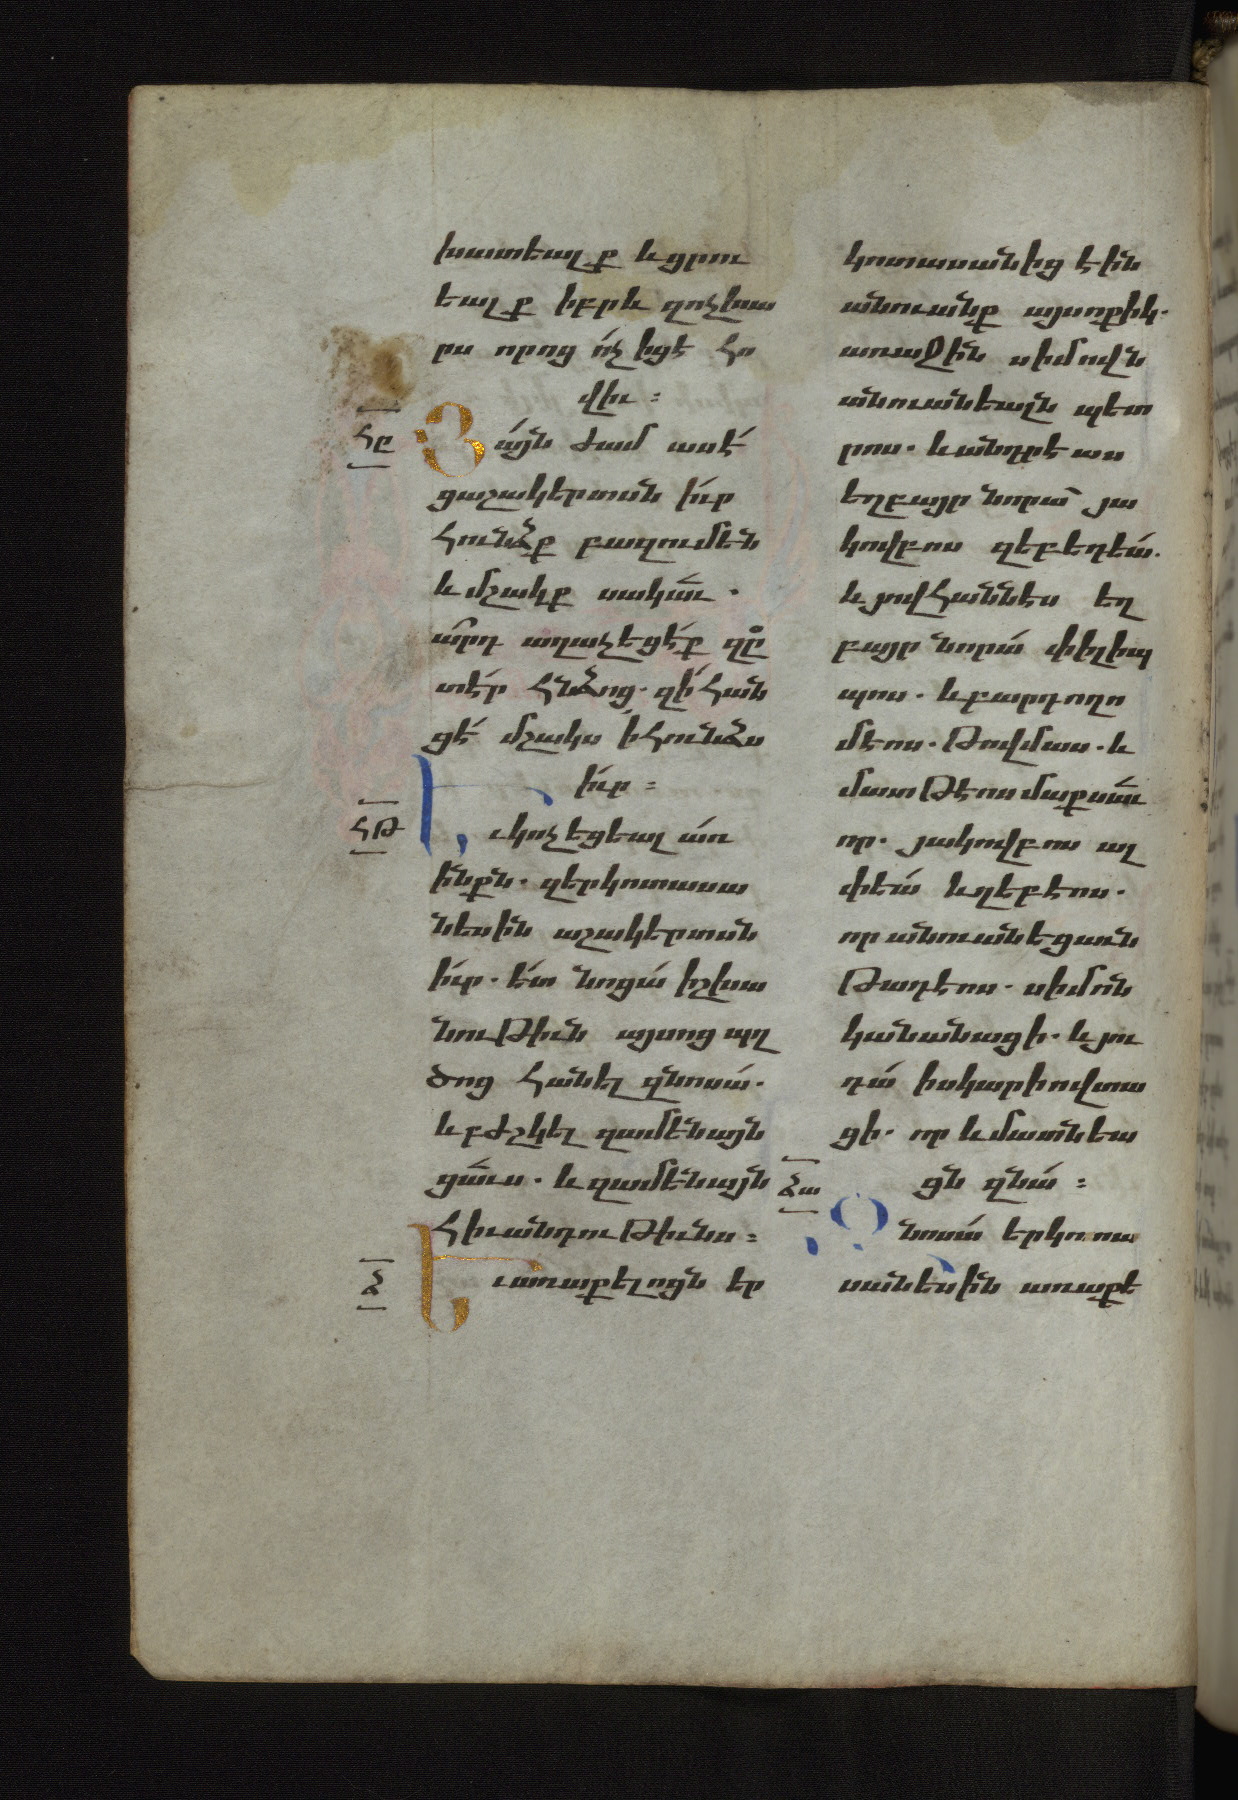 խատեալք և ցրու
եալք իբրև զոչխա
րս որոց ո՛չ իցէ հո
վիւ ։
ՀԸ
Յայն ժամ ասէ՛
ցաշակերտսն իւր
հունձք բազում են
և մշակք սակաւ .
արդ աղաչեցէ՛ք զը
տէր հնձոց . զի հան
ցէ՛ մշակս ի հունձս
իւր ։
ՀԹ
Եւ կոչեցեալ առ
ինքն . զերկոտասա
նեսին աշակերտսն
իւր . ետ նոցա իշխա
նութիւն այսոց պղ
ծոց հանել զնոսա .
և բժշկել զամենայն
ցաւս . և զամենայն
հիւանդութիւնս ։
Ձ
Եւ առաքելոցն եր
կոտասանից էին
անուանք այսոքիկ .
առաջին սիմովն
անուանեալն պետ
րոս . և անդրէաս
եղբայր նորա՝ յա
կովբոս զեբեդեա .
և յովհաննէս եղ
բայր նորա փիլիպ
պոս . և բարդողո
մէոս . Թովմաս . և
մատթէոս մաքսաւ
որ . յակովբոս ալ
փեա և ղեբէոս .
որ անուանեցաւն
Թադէոս . սիմոն
կանանացի . և յու
դա իսկարիովտա
ցի . որ և մատնեա
ցն զնա ։
ՁԱ
Զնոսա երկոտա
սանեսին առաքէ